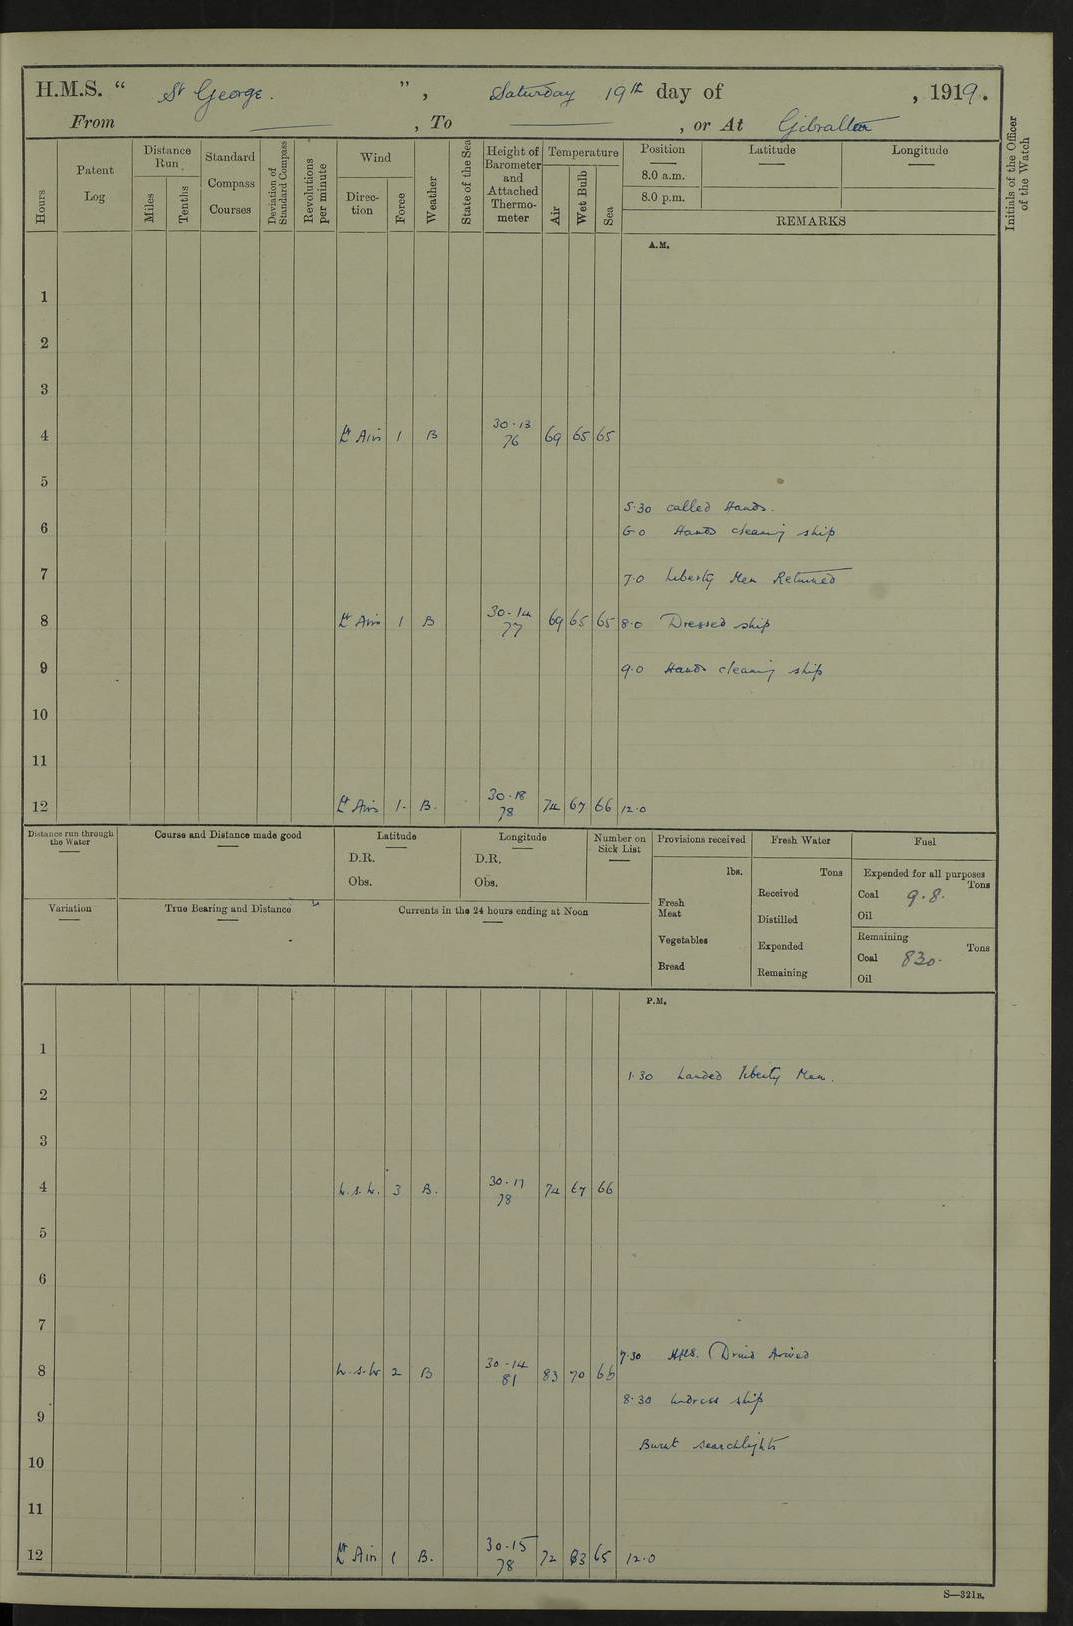 H.M.S. “ St George. ” , Saturday 19th day of , 1919.
From —— , To —— , or At Gibraltar
Hours
Patent Log
Distance Run
Miles
Tenths
Standard Compass Courses
Deviation of Standard Compass
Revolutions per minute
Wind
Direction
Force
Weather
State of the Sea
Height of Barometer and Attached Thermometer
Temperature
Air
Wet Bulb
Sea
Position
8.0 a.m.
8.0 p.m.
Latitude
Longitude
REMARKS
Initials of the Officer of the Watch
A.M.
1
2
3
4 Lt Airs 1 B 30.13 76 69 65 65
5
5.30 called Hands.
6 6.0 Hands cleaning ship
7 7.0 Liberty Men Returned
8 Lt Airs 1 B 30.14 77 69 65 65 8.0 Dressed ship
9 9.0 Hands cleaning ship
10
11
12 Lt Airs 1. B. 30.18 78 74 67 66 12.0
Distance run through the Water
Course and Distance made good
Latitude
D.R.
Obs.
Longitude
D.R.
Obs.
Number on Sick List
Provisions received
lbs.
Fresh Meat
Vegetables
Bread
Fresh Water
Tons
Received
Distilled
Expended
Remaining
Fuel
Expended for all purposes
Tons
Coal 9.8.
Oil
Remaining
Tons
Coal 830.
Oil
Variation
True Bearing and Distance
Currents in the 24 hours ending at Noon
P.M.
1
1.30 Landed liberty Men.
2
3
4 W.S.W. 3 B. 30.17 78 74 67 66
5
6
7
7.30 HMS. Druid Arrived
8 W.S.W 2 B 30.14 81 83 70 66
8.30 Undress ship
9
Burnt searchlights
10
11
12 Lt Air 1 B. 30.15 78 72 63 65 12.0
S—321B.